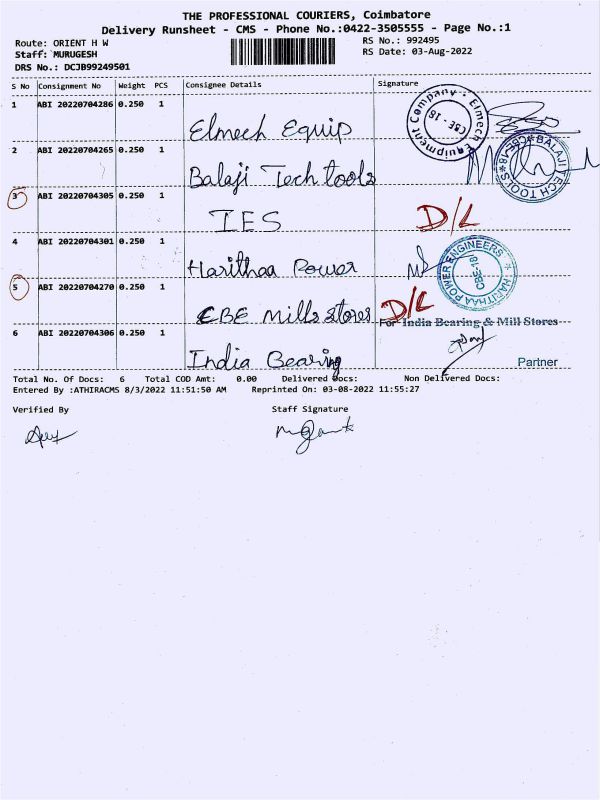 THE PROFESSIONAL COURIERS, Coimbatore
Delivery Runsheet - CMS - Phone No.:0422-3505555 - Page No.:1
Route: ORIENT H W
RS No.: 992495
Staff: MURUGESH
RS Date: 03-Aug-2022
DRS No.: DCJB99249501
S No Consignment No Weight PCS Consignee Details Signature
1 ABI 20220704286 0.250 1 Elmech Equip
Equipment Company: Elmech
CBE - 18
2 ABI 20220704265 0.250 1 Balaji Tech tools
BALAJI TECH TOOLS
CBE-18
3 ABI 20220704305 0.250 1 IES D/L
4 ABI 20220704301 0.250 1 Harithaa Power
HARITHAA POWER ENGINEERS
CBE-18
5 ABI 20220704270 0.250 1 CBE Mills stores D/L
For India Bearing & Mill Stores
6 ABI 20220704306 0.250 1 India Bearing
Partner
Total No. Of Docs: 6 Total COD Amt: 0.00 Delivered Docs: Non Delivered Docs:
Entered By :ATHIRACMS 8/3/2022 11:51:50 AM Reprinted On: 03-08-2022 11:55:27
Verified By Staff Signature